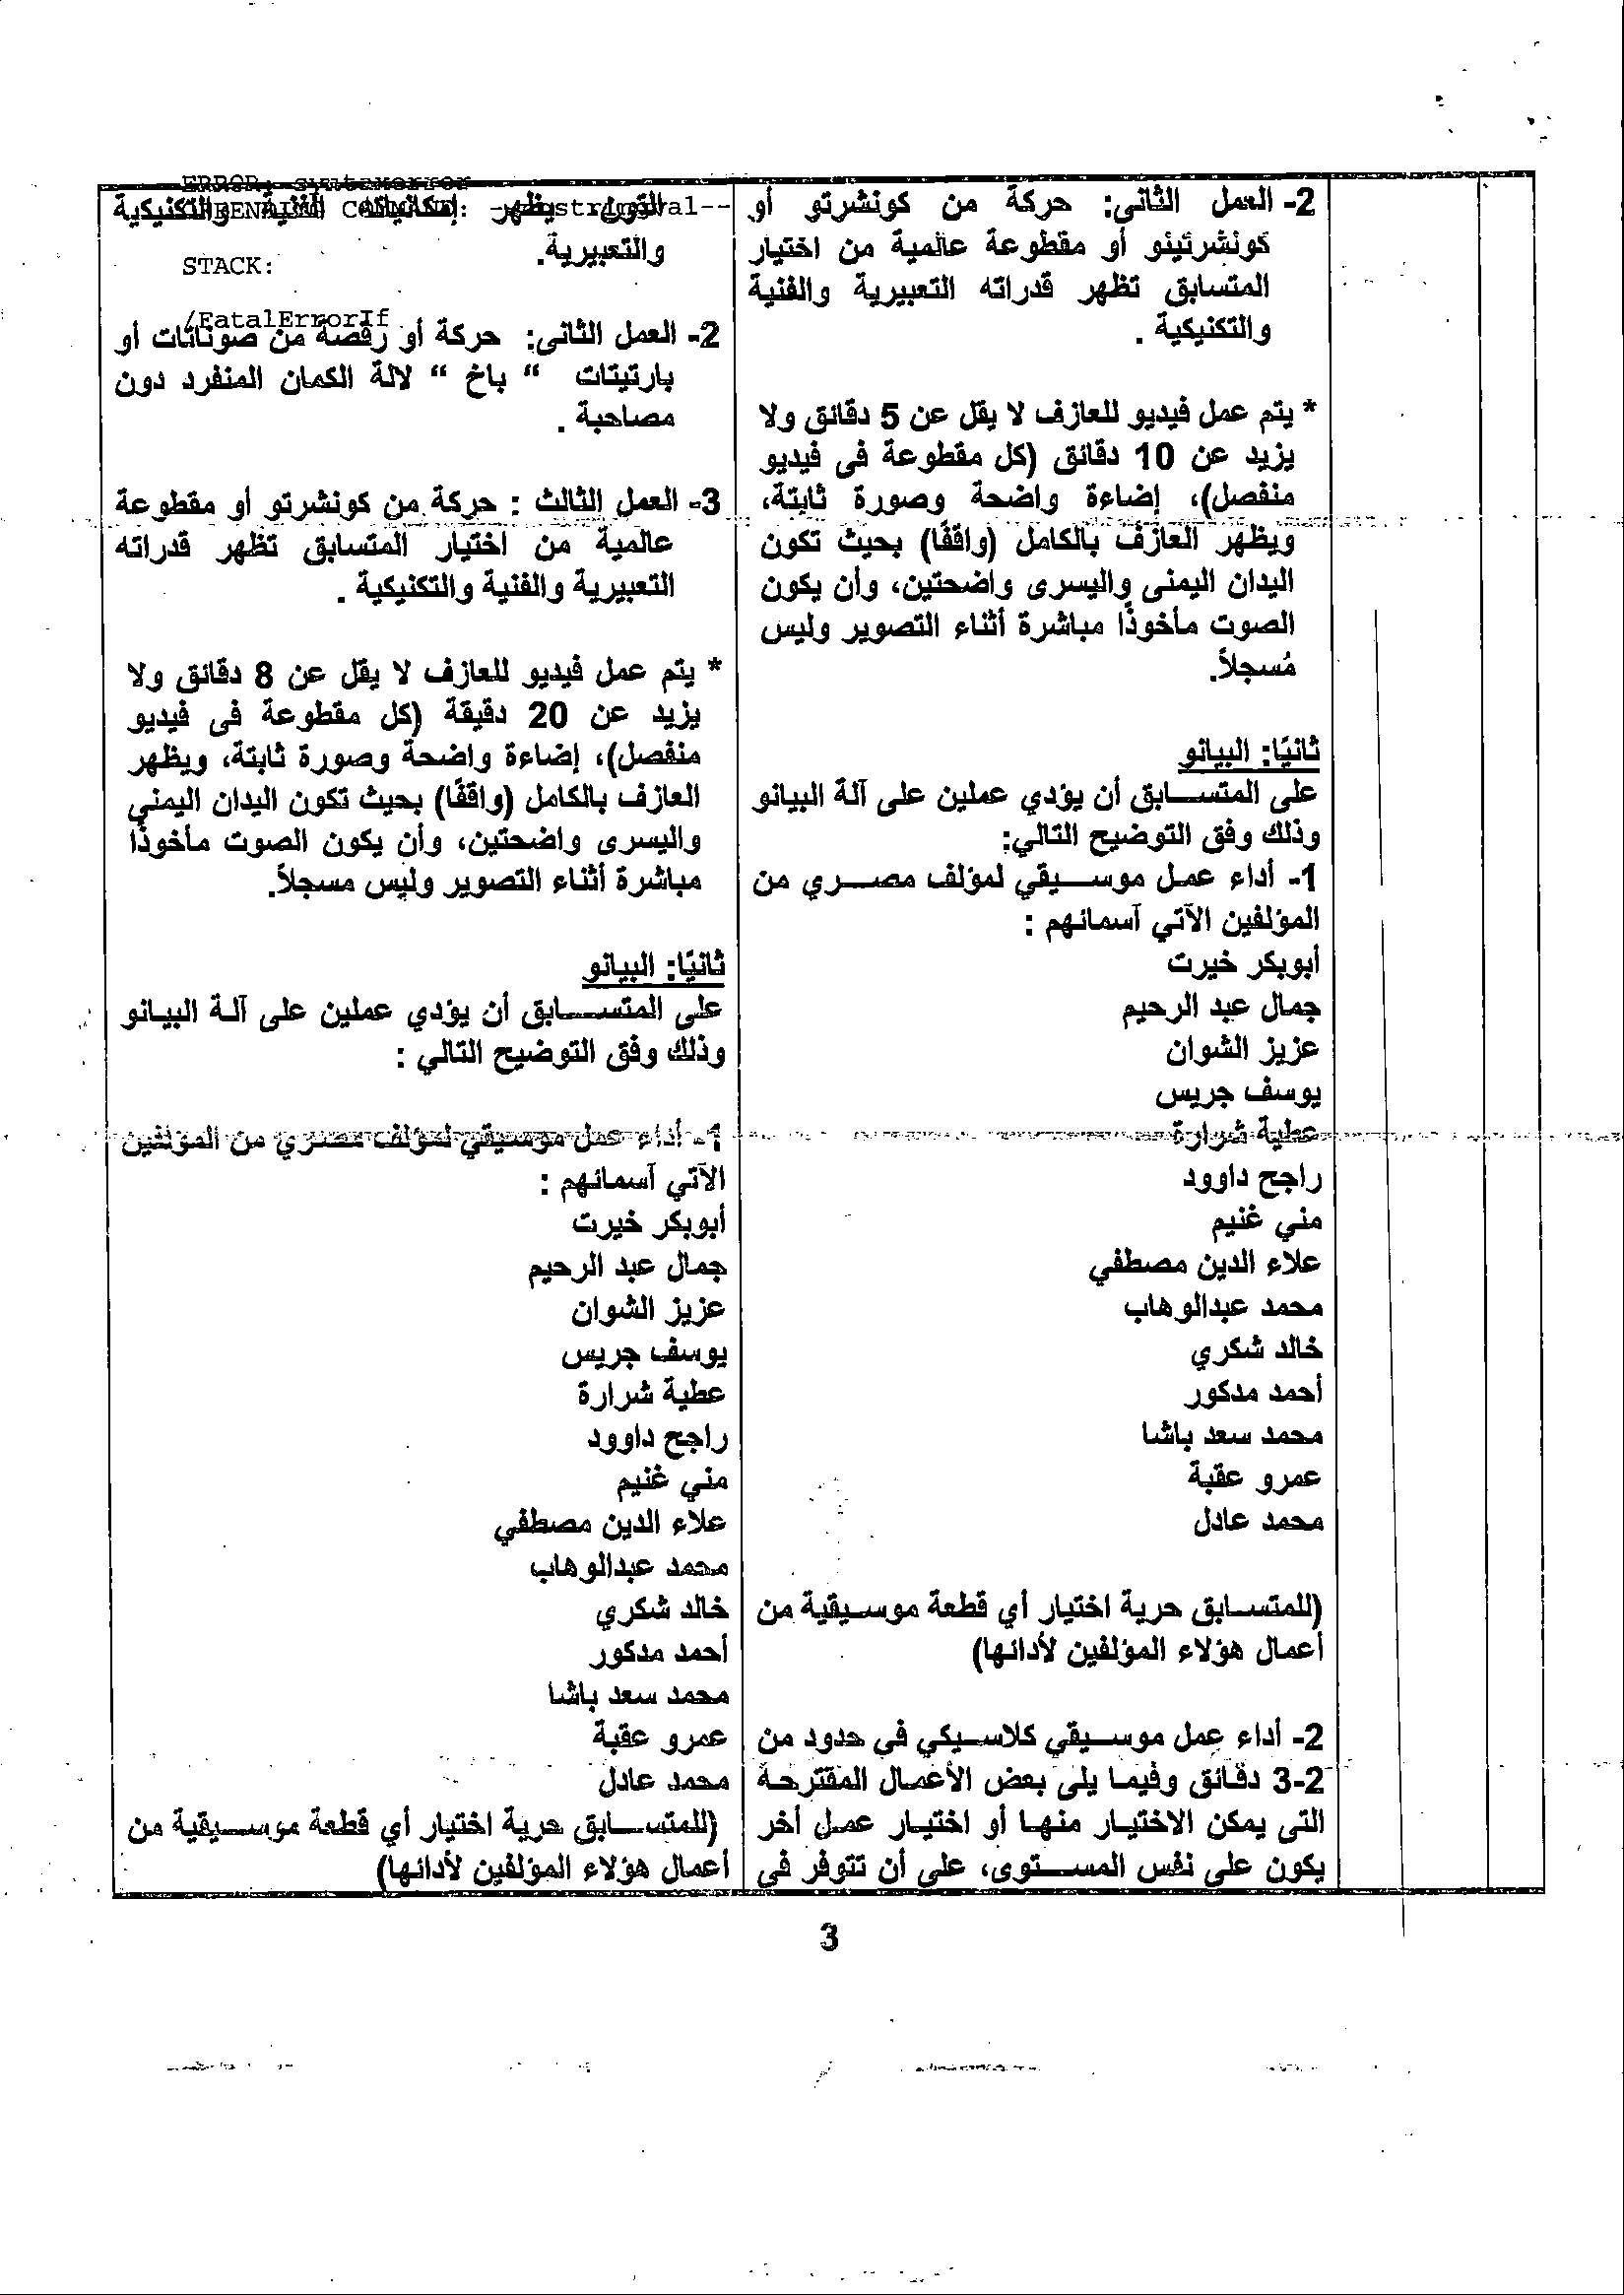 2- العمل الثانى: حركة من كونشرتو أو
كونشرتينو أو مقطوعة عالمية من اختيار
المتسابق تظهر قدراته التعبيرية والفنية
والتكنيكية .
* يتم عمل فيديو للعازف لا يقل عن 5 دقائق ولا
يزيد عن 10 دقائق (كل مقطوعة فى فيديو
منفصل)، إضاءة واضحة وصورة ثابتة،
ويظهر العازف بالكامل (واقفًا) بحيث تكون
اليدان اليمنى واليسرى واضحتين، وأن يكون
الصوت مأخوذًا مباشرة أثناء التصوير وليس
مُسجلاً.
ثانيًا: البيانو
على المتسابق أن يؤدي عملين على آلة البيانو
وذلك وفق التوضيح التالي:
1- أداء عمل موسيقي لمؤلف مصري من
المؤلفين الآتي آسمائهم :
أبوبكر خيرت
جمال عبد الرحيم
عزيز الشوان
يوسف جريس
عطية شرارة
راجح داوود
مني غنيم
علاء الدين مصطفي
محمد عبدالوهاب
خالد شكري
أحمد مدكور
محمد سعد باشا
عمرو عقبة
محمد عادل
(للمتسابق حرية اختيار أي قطعة موسيقية من
أعمال هؤلاء المؤلفين لأدائها)
2- أداء عمل موسيقي كلاسيكي في حدود من
3-2 دقائق وفيما يلى بعض الأعمال المقترحة
التى يمكن الاختيار منها أو اختيار عمل أخر
يكون على نفس المستوى، على أن تتوفر في
ERROR: syntaxerror
OFFENDING COMMAND: --nostringval--
STACK:
/FatalErrorIf
يظهر إمكانياته الفنية والتكنيكية
والتعبيرية.
2- العمل الثانى: حركة أو رقصة من صوناتات أو
بارتيتات “ باخ “ لالة الكمان المنفرد دون
مصاحبة .
3- العمل الثالث : حركة من كونشرتو أو مقطوعة
عالمية من اختيار المتسابق تظهر قدراته
التعبيرية والفنية والتكنيكية .
* يتم عمل فيديو للعازف لا يقل عن 8 دقائق ولا
يزيد عن 20 دقيقة (كل مقطوعة فى فيديو
منفصل)، إضاءة واضحة وصورة ثابتة، ويظهر
العازف بالكامل (واقفًا) بحيث تكون اليدان اليمني
واليسرى واضحتين، وأن يكون الصوت مأخوذًا
مباشرة أثناء التصوير وليس مسجلاً.
ثانيًا: البيانو
على المتسابق أن يؤدي عملين على آلة البيانو
وذلك وفق التوضيح التالي :
1- أداء عمل موسيقي لمؤلف مصري من المؤلفين
الآتي آسمائهم :
أبوبكر خيرت
جمال عبد الرحيم
عزيز الشوان
يوسف جريس
عطية شرارة
راجح داوود
مني غنيم
علاء الدين مصطفي
محمد عبدالوهاب
خالد شكري
أحمد مدكور
محمد سعد باشا
عمرو عقبة
محمد عادل
(للمتسابق حرية اختيار أي قطعة موسيقية من
أعمال هؤلاء المؤلفين لأدائها)
3